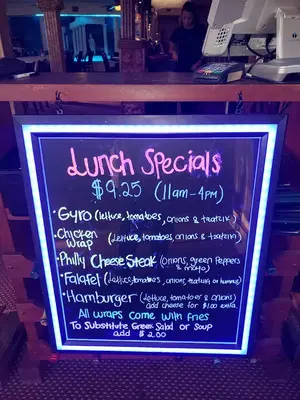 Lunch Specials
$9.25 (11am-4pm)
• Gyro (lettuce, tomatoes, onions & tzatziki)
• Chicken Wrap (lettuce, tomatoes, onions & tzatziki)
• Philly Cheese Steak (onions, green Peppers & mayo)
• Falafel (lettuce, tomatoes, onions, tzatziki or hummus)
• Hamburger (lettuce, tomatoes & onions)
add cheese for $1.00 extra
All wraps come with fries
To Substitute Greek Salad or Soup
add $2.00